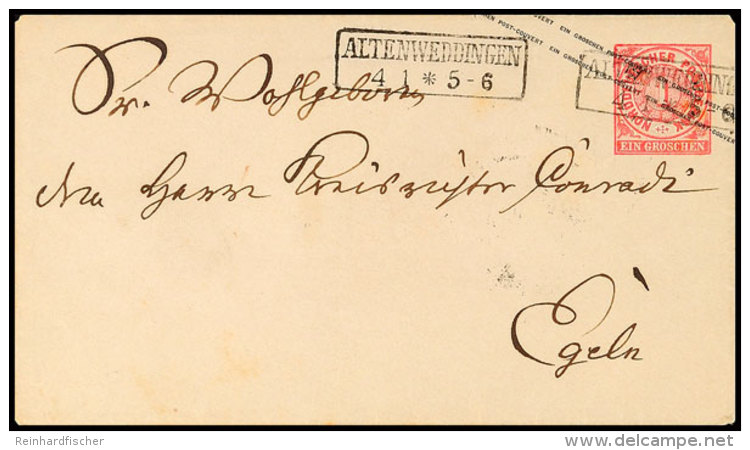 EIN GROSCHEN POST-COUVERT EIN GROSCHEN POST-COUVERT
ALTENWEDDINGEN
4 1 * 5-6
NORDDEUTSCHER POSTBEZIRK
EIN GROSCHEN
Sr. Wohlgeborn
den Herrn Kreisrichter Conradi
Egeln
Reinhardfischer
delcampe.net